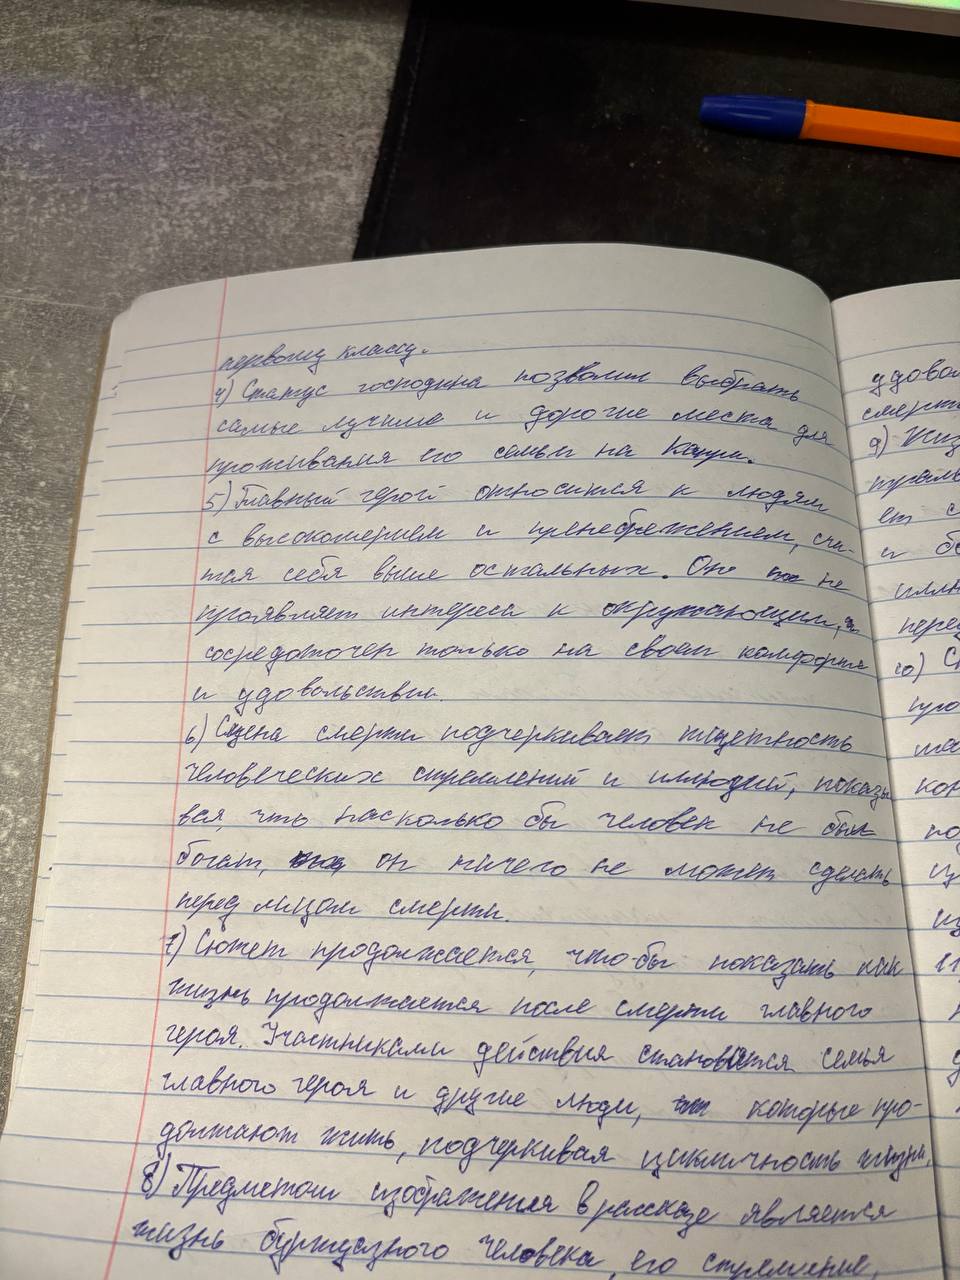 первому классу.
4) Статус господина позволил выбрать
самые лучшие и дорогие места для
проживания его семьи на Капри.
5) Главный герой относится к людям
с высокомерием и пренебрежением, счи-
тая себя выше остальных. Он не
проявляет интереса к окружающим,
сосредоточен только на своем комфорте
и удовольствии.
6) Сцена смерти подчеркивает тщетность
человеческих стремлений и иллюзий, показы
вая, что насколько бы человек не был
богат, он ничего не может сделать
перед лицом смерти.
7) Сюжет продолжается, что-бы показать как
жизнь продолжается после смерти главного
героя. Участниками действия становятся семья
главного героя и другие люди, которые про-
должают жить, подчеркивая цикличность жизни.
8) Предметом изображения в рассказе является
жизнь буржуазного человека, его стремление,
удовол
смерт
9) Жиз
ет с
и бе
илл
перед
10) С
про
кон
по
11